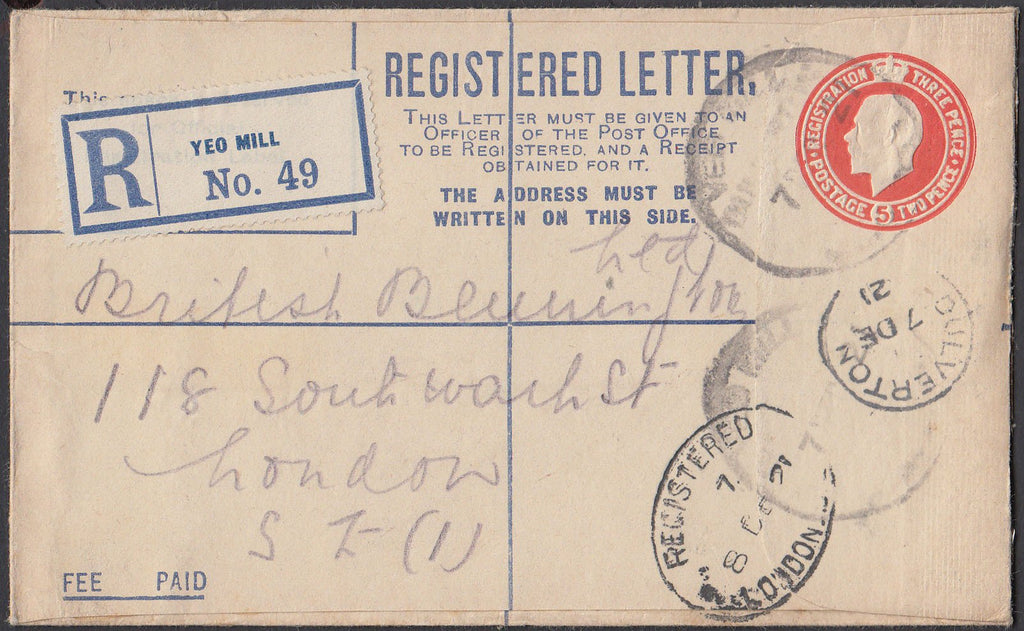 This
R
YEO MILL
No. 49
REGISTERED LETTER.
THIS LETTER MUST BE GIVEN TO AN
OFFICER OF THE POST OFFICE
TO BE REGISTERED, AND A RECEIPT
OBTAINED FOR IT.
THE ADDRESS MUST BE
WRITTEN ON THIS SIDE.
REGISTRATION THREE PENCE
POSTAGE 5 TWO PENCE
British
118 Southwark St
London
S E (1)
DULVERTON
7 DE
21
REGISTERED
8 DE 21
LONDON
FEE PAID